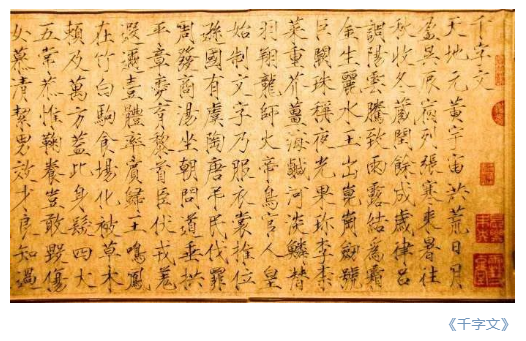 千字文
天地元黃宇宙洪荒日月
盈昃辰宿列張寒來暑往
秋收冬藏閏餘成歲律呂
調陽雲騰致雨露結為霜
金生麗水玉出崑崗劒號
巨闕珠稱夜光果珍李柰
菜重芥薑海鹹河淡鱗潛
羽翔龍師火帝鳥官人皇
始制文字乃服衣裳推位
遜國有虞陶唐弔民伐罪
周發商湯坐朝問道垂拱
平章愛育黎首臣伏戎羌
遐邇壹體率賓歸王鳴鳳
在竹白駒食場化被草木
賴及萬方蓋此身髮四大
五常恭惟鞠養豈敢毀傷
女慕清絜男效才良知過
《千字文》